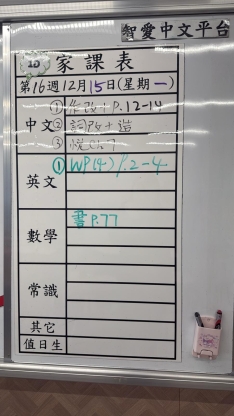 智愛中文平台
1D 家課表
第16週12月15日(星期一)
中文
① 作改 P.12-14
② 詞改+造
③
英文
① WP(4) P.2-4
數學
書 P.77
常識
其它
值日生